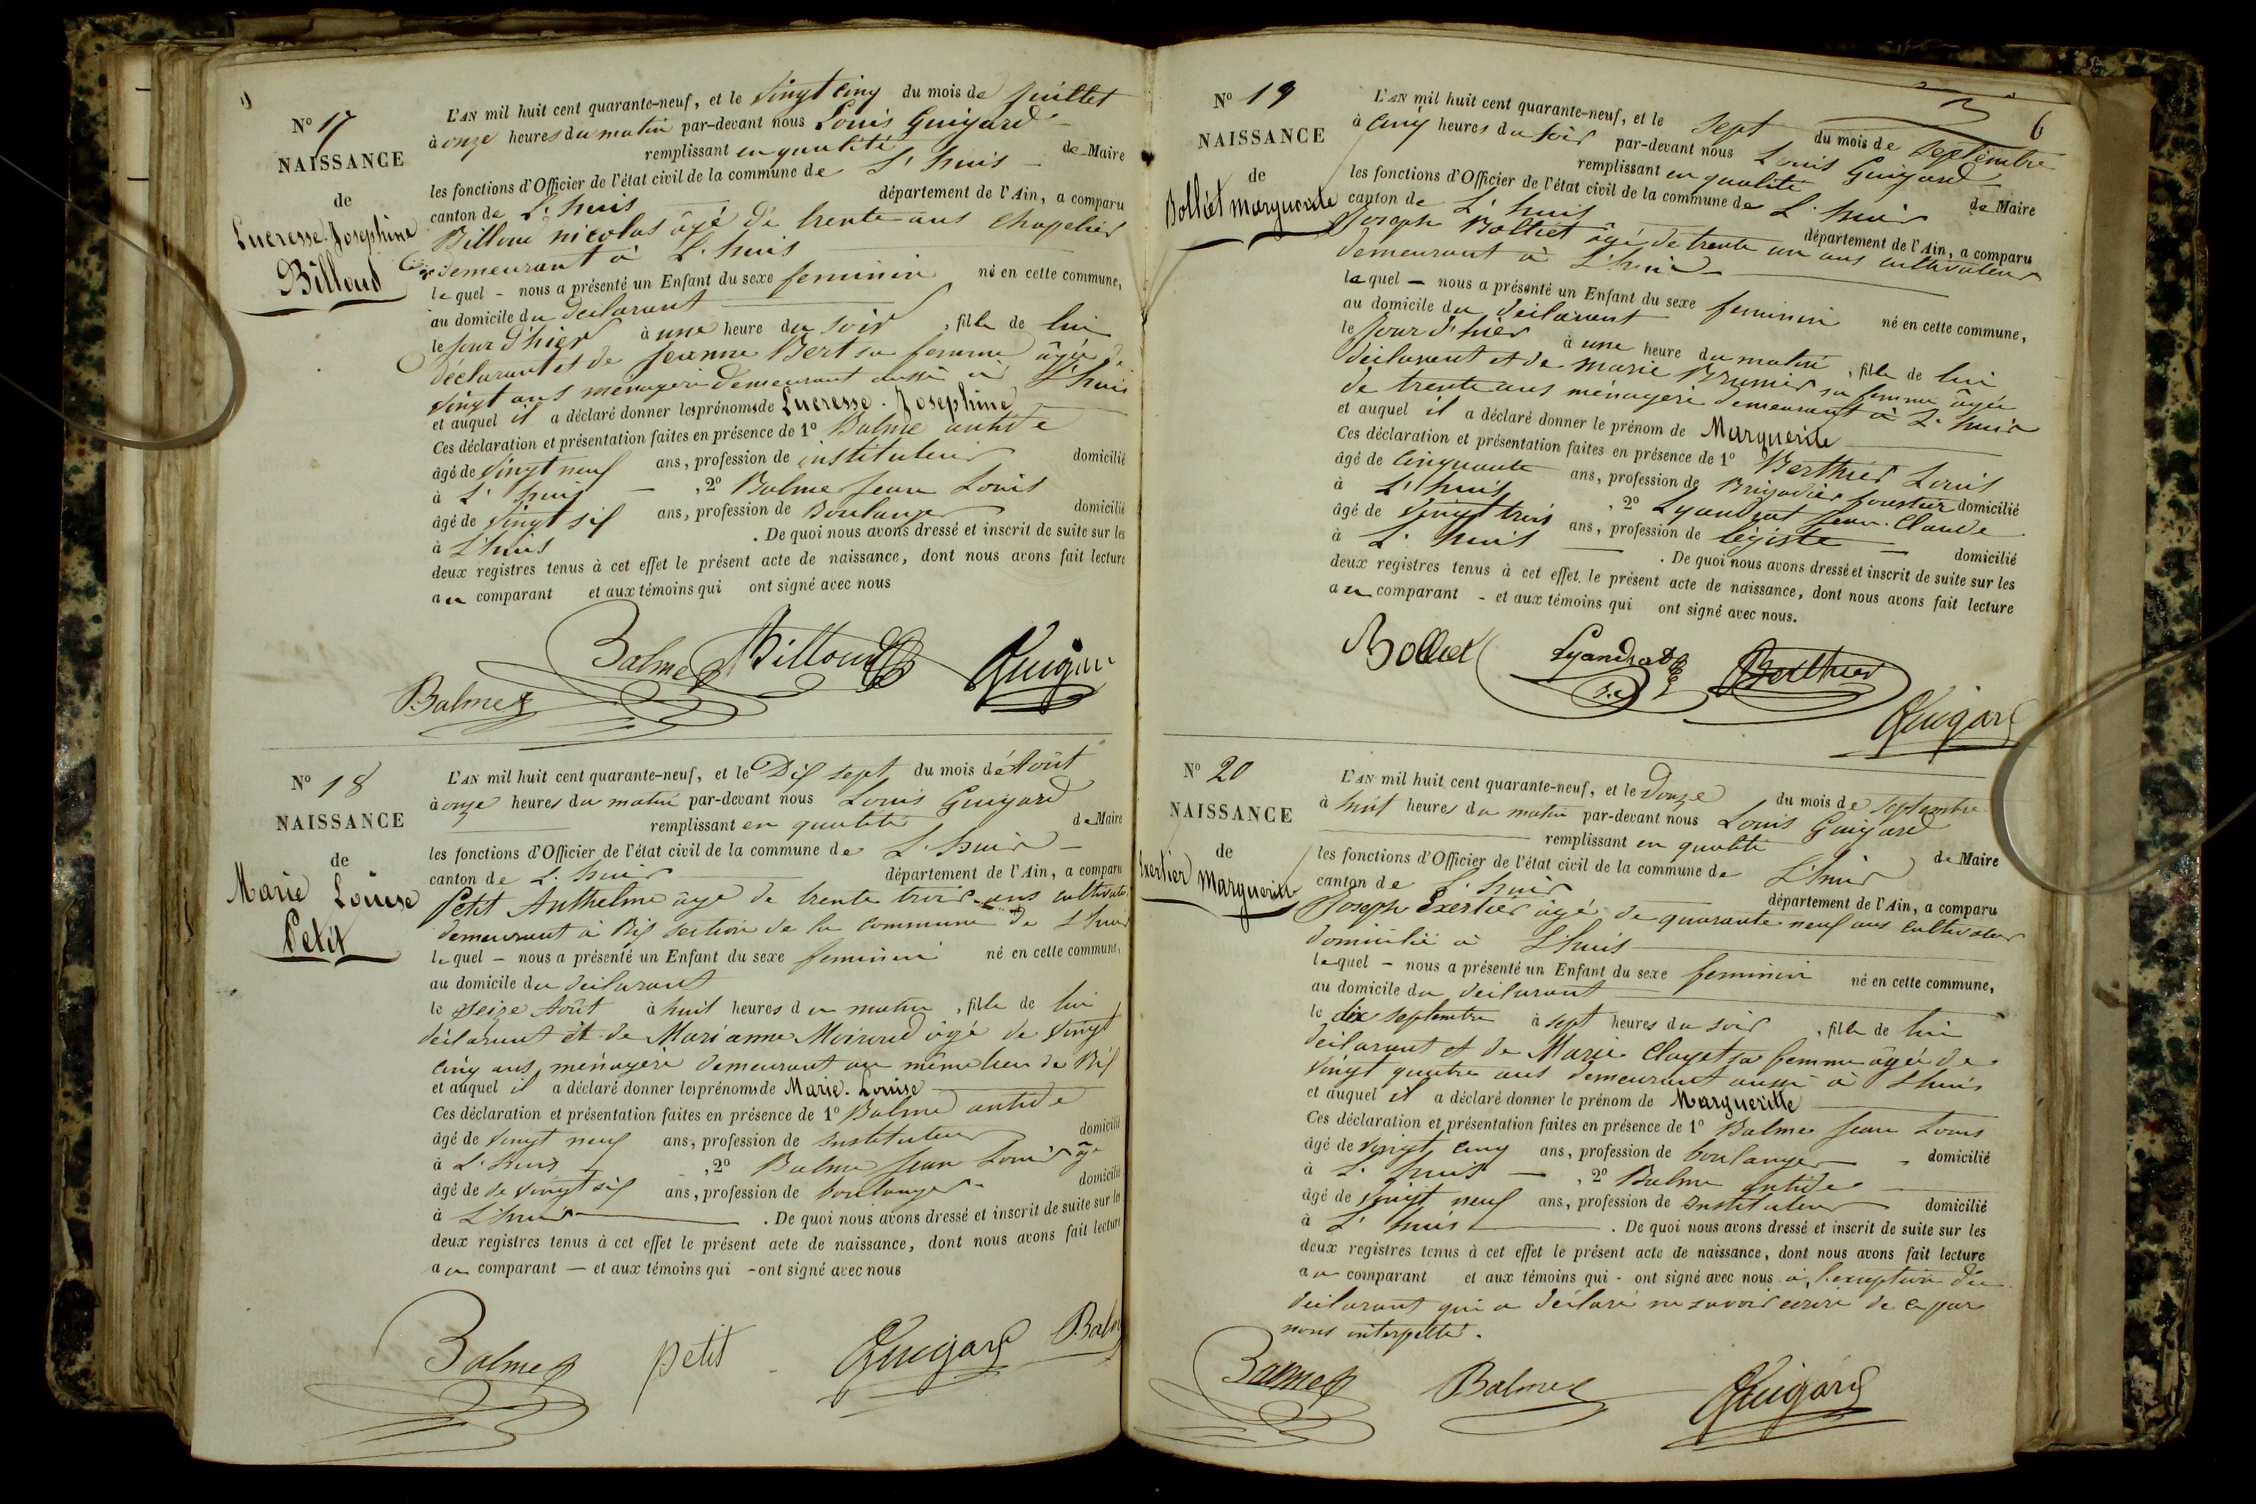 N° 17
NAISSANCE
de
Lucresse Josephine
Billoud
L'AN mil huit cent quarante-neuf, et le vingt cinq du mois de juillet
à onze heures du matin par-devant nous Louis Guigard
remplissant en qualité de Maire
les fonctions d'Officier de l'état civil de la commune de L'huis
canton de L'huis département de l'Ain, a comparu
Billoud nicolas âgé de trente ans chapelier
demeurant à L'huis
lequel – nous a présenté un Enfant du sexe feminin né en cette commune,
au domicile du déclarant
le jour d'hier à une heure du soir, fille de lui
déclarant et de Jeanne Bert sa femme âgée de
vingt ans menagere demeurant aussi à L'huis
et auquel il a déclaré donner les prénoms de Lucresse. Josephine
Ces déclaration et présentation faites en présence de 1° Balme antide
âgé de vingt neuf ans, profession de instituteur domicilié
à L'huis – , 2° Balme Jean Louis
âgé de vingt six ans, profession de Boulanger domicilié
à L'huis . De quoi nous avons dressé et inscrit de suite sur les
deux registres tenus à cet effet le présent acte de naissance, dont nous avons fait lecture
au comparant et aux témoins qui ont signé avec nous
Balme Billoud Guigard
Balme
N° 18
NAISSANCE
de
Marie Louise
Petit
L'AN mil huit cent quarante-neuf, et le Dix sept du mois de Août
à onze heures du matin par-devant nous Louis Guigard
remplissant en qualité de Maire
les fonctions d'Officier de l'état civil de la commune de L'huis –
canton de L'huis département de l'Ain, a comparu
Petit Anthelme âge de trente trois ans cultivateur
demeurant à Rix section de la commune de L'huis
lequel – nous a présenté un Enfant du sexe feminin né en cette commune,
au domicile du déclarant
le seize Août à huit heures du matin, fille de lui
déclarant et de Marianne Moiroud âgé de vingt
cinq ans, ménagère demeurant au même lieu de Rix
et auquel il a déclaré donner les prénoms de Marie. Louise
Ces déclaration et présentation faites en présence de 1° Balme antide
âgé de vingt neuf ans, profession de instituteur domicilié
à L'huis , 2° Balme Jean Louis âgé
âgé de de vingt six ans, profession de boulanger domicilié
à L'huis . De quoi nous avons dressé et inscrit de suite sur les
deux registres tenus à cet effet le présent acte de naissance, dont nous avons fait lecture
au comparant — et aux témoins qui - ont signé avec nous
Balme petit Guigard Balme
6
N° 19
NAISSANCE
de
Bolliet marguerite
L'AN mil huit cent quarante-neuf, et le sept du mois de septembre
à cinq heures du soir par-devant nous Louis Guigard
remplissant en qualité de Maire
les fonctions d'Officier de l'état civil de la commune de L'huis
canton de L'huis département de l'Ain, a comparu
Joseph Bolliet âgé de trente un ans cultivateur
demeurant à L'huis
lequel – nous a présenté un Enfant du sexe feminin né en cette commune,
au domicile du déclarant
le jour d'hier à une heure du matin, fille de lui
déclarant et de marie Brunier sa femme âgée
de trente ans ménagère demeurant à L'huis
et auquel il a déclaré donner le prénom de Marguerite
Ces déclaration et présentation faites en présence de 1° Berthier Louis
âgé de cinquante ans, profession de Brigadier forestier domicilié
à L'huis , 2° Lyandrat Jean. Claude
âgé de vingt trois ans, profession de légiste – domicilié
à L'huis . De quoi nous avons dressé et inscrit de suite sur les
deux registres tenus à cet effet le présent acte de naissance, dont nous avons fait lecture
au comparant - et aux témoins qui ont signé avec nous.
Bolliet Lyandrat Berthier
Guigard
N° 20
NAISSANCE
de
Exertier Margueritte
L'AN mil huit cent quarante-neuf, et le Douze du mois de septembre
à huit heures du matin par-devant nous Louis Guigard
remplissant en qualité de Maire
les fonctions d'Officier de l'état civil de la commune de L'huis
canton de L'huis département de l'Ain, a comparu
Joseph Exertier âgé de quarante neuf ans cultivateur
domicilié à L'huis
lequel – nous a présenté un Enfant du sexe feminin né en cette commune,
au domicile du déclarant
le dix septembre à sept heures du soir, fille de lui
déclarant et de Marie Clayet sa femme âgée de
vingt quatre ans demeurant aussi à L'huis
et auquel il a déclaré donner le prénom de Margueritte
Ces déclaration et présentation faites en présence de 1° Balme Jean Louis
âgé de vingt cinq ans, profession de boulanger - domicilié
à L'huis — , 2° Balme antide
âgé de vingt neuf ans, profession de instituteur domicilié
à L'huis . De quoi nous avons dressé et inscrit de suite sur les
deux registres tenus à cet effet le présent acte de naissance, dont nous avons fait lecture
au comparant et aux témoins qui - ont signé avec nous à l'exception du
déclarant qui a déclaré ne savoir ecrire de ce par
nous interpellé.
Balme Balme Guigard